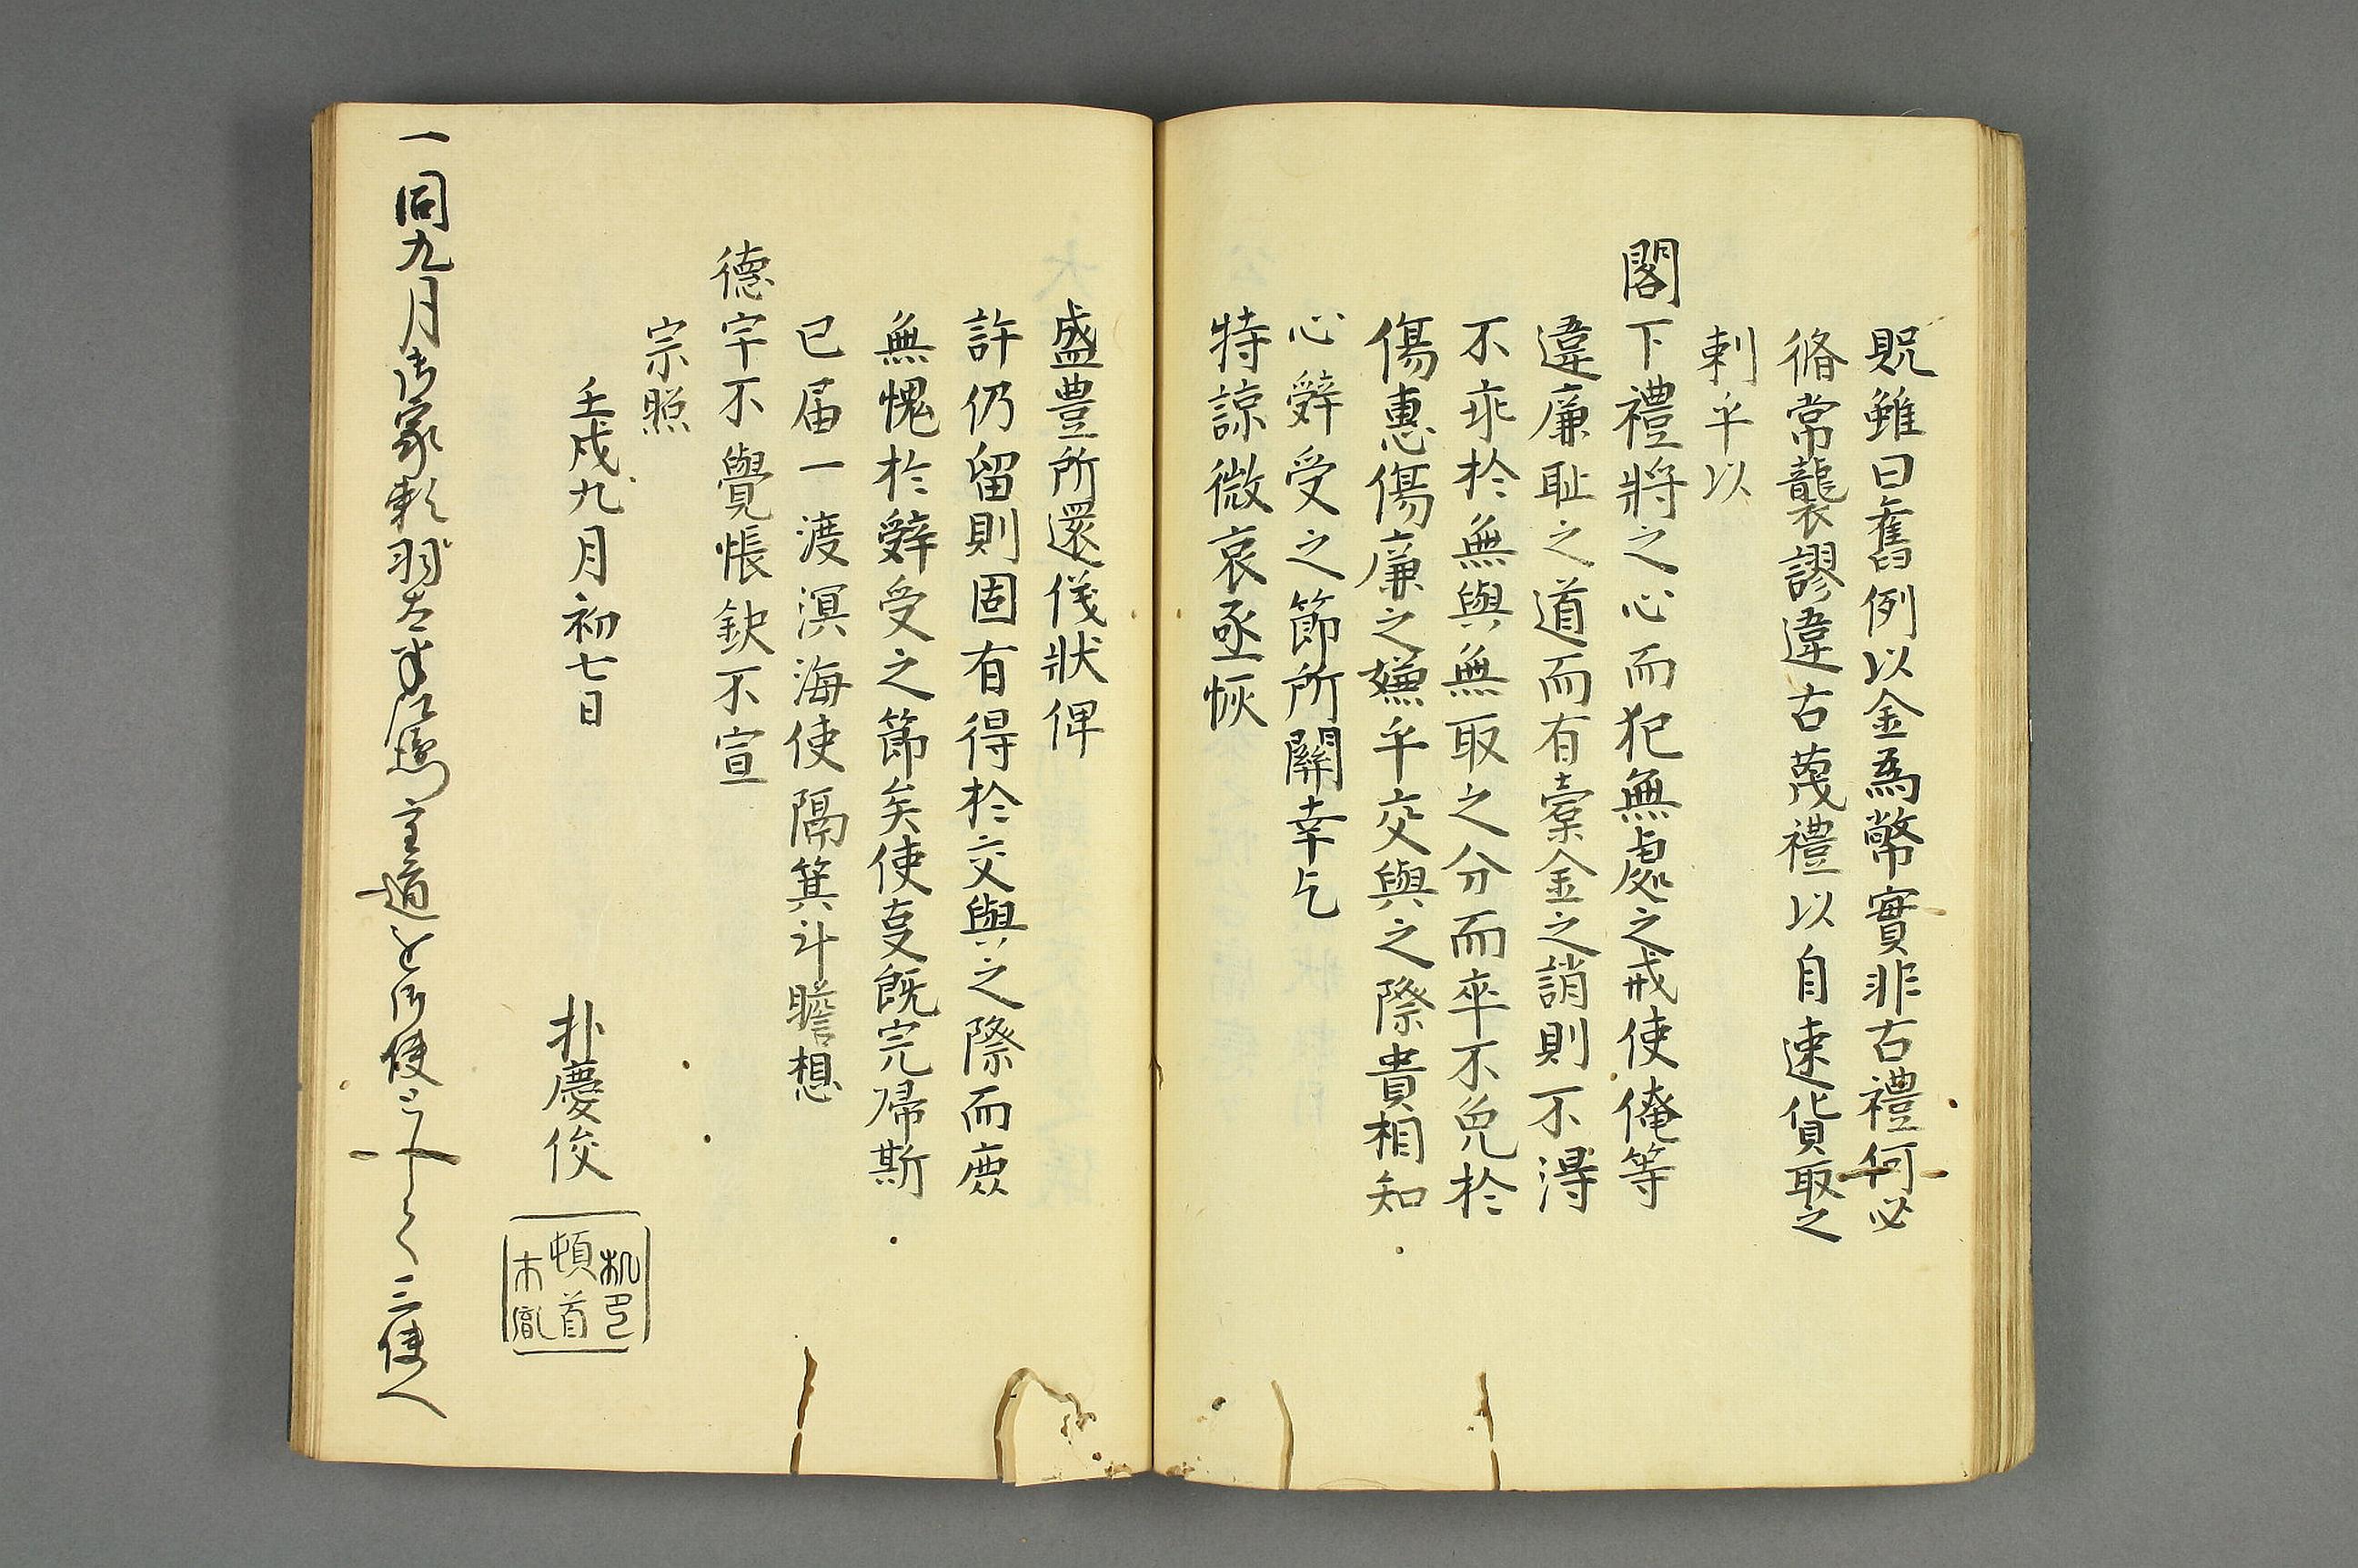 貺雖曰舊例以金為幣實非古禮何必
脩常襲謬違古蔑禮以自速貨取之
剌乎以
閣下禮將之心而犯無處之戒使俺等
違廉耻之道而有橐金之誚則不淂
不乖於無與無取之分而卒不免於
傷惠傷廉之嫌乎交與之際貴相知
心辤受之節所關幸乞
特諒微哀亟恢
盛豊所還儀狀俾
許仍留則固有得於交與之際而庶
無愧於辤受之節矣使事既完帰斯
已届一渡溟海使隔箕斗瞻想
德宇不覺悵欽不宣
宗照
壬戌九月初七日
朴慶俊
頓首
一同九月 家 羽 使三 三使